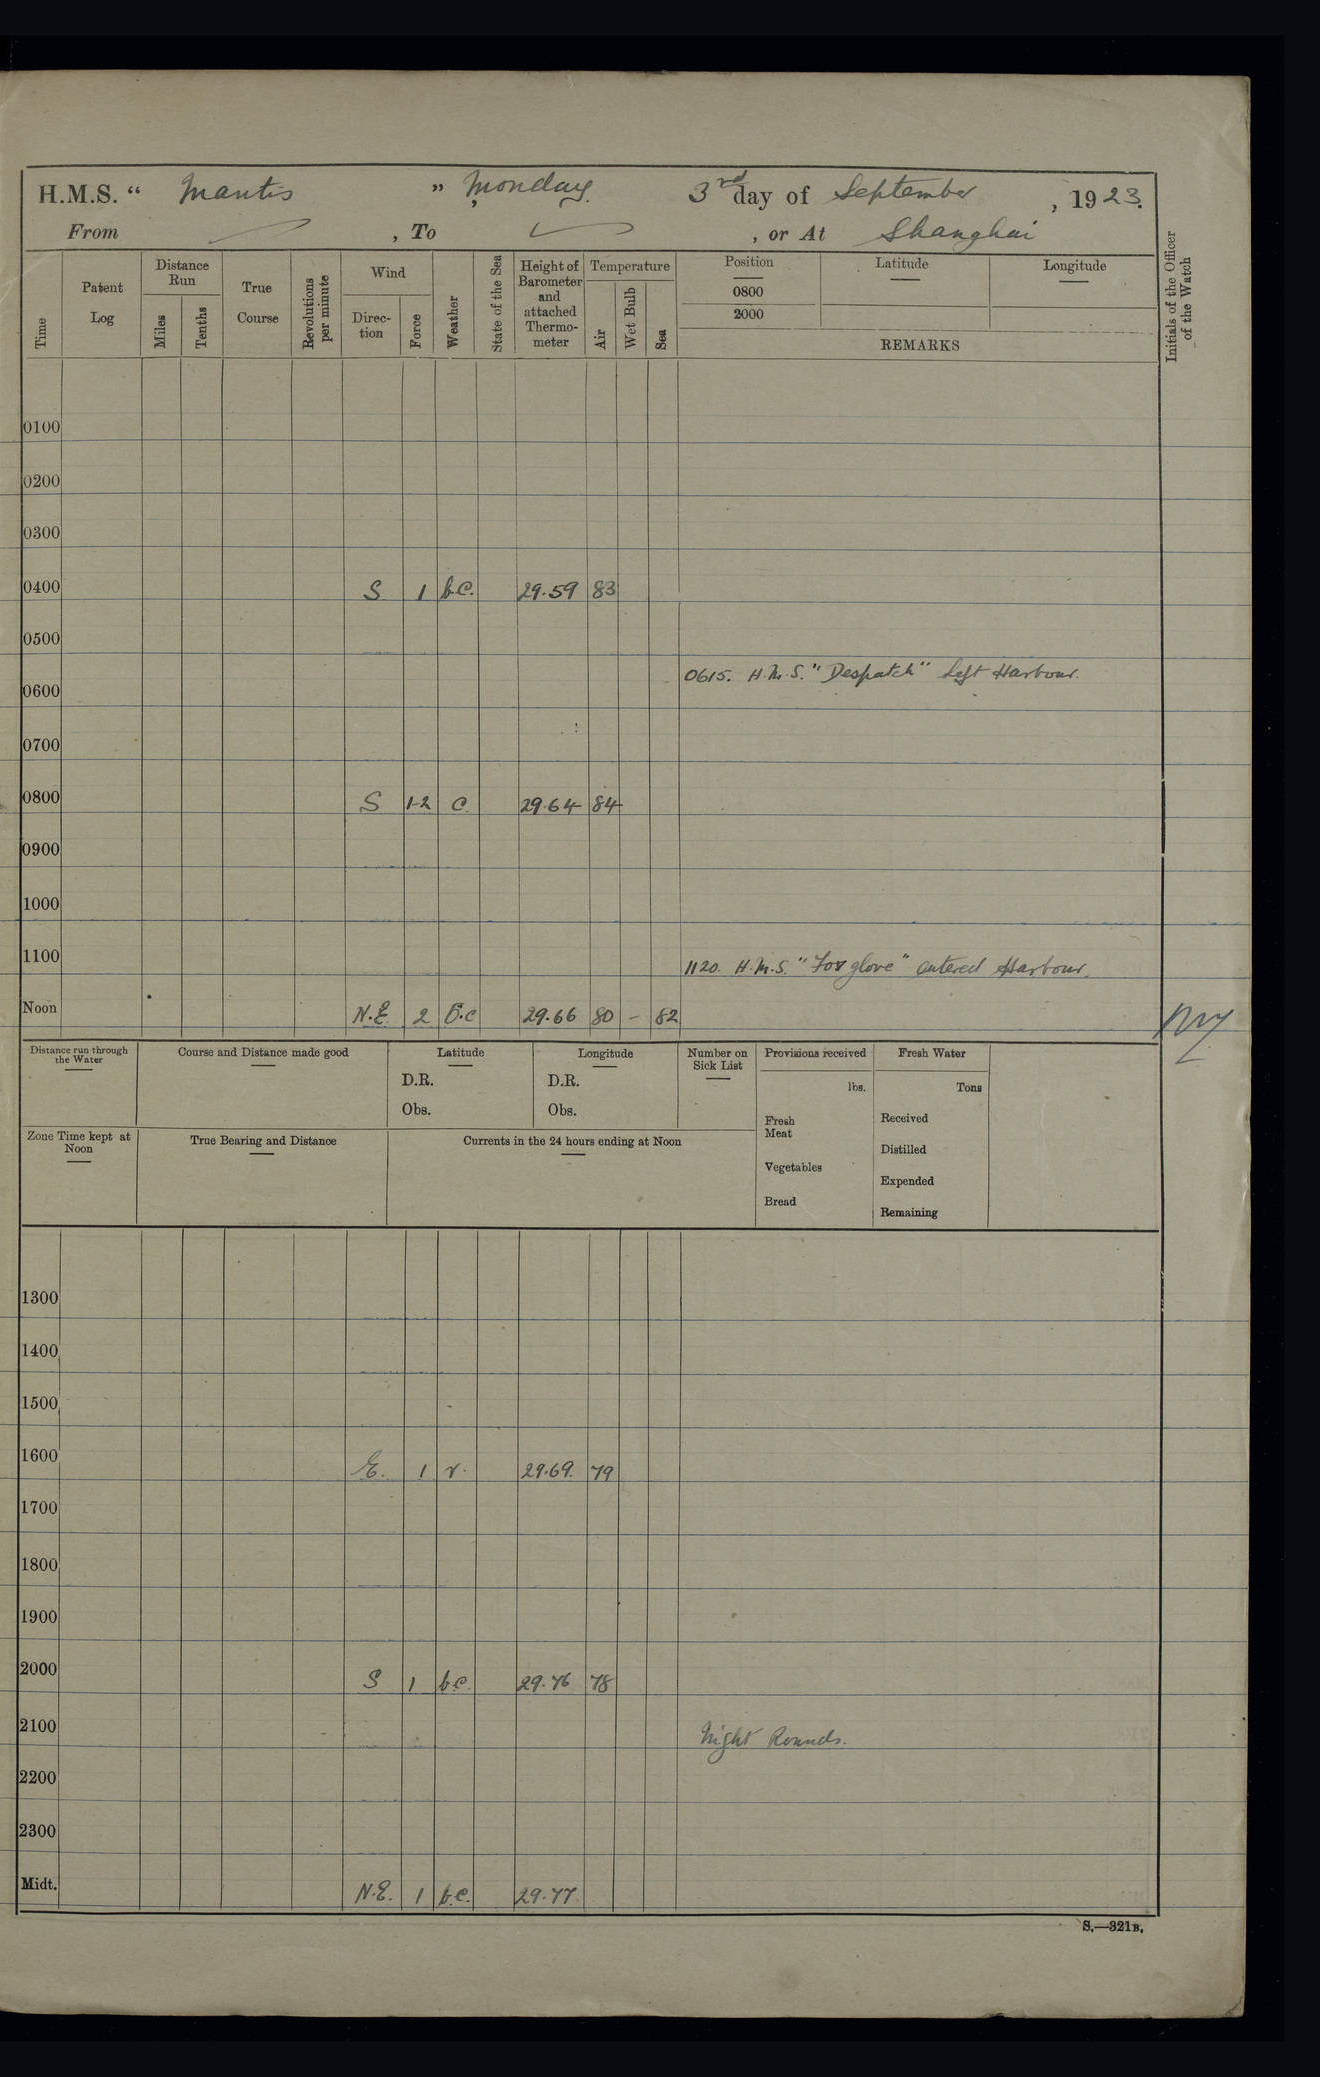 H.M.S. " Mantis " , Monday. 3rd day of September , 1923.
From , To , or At Shanghai
Time
Patent Log
Distance Run
Miles
Tenths
True Course
Revolutions per minute
Wind
Direc-tion
Force
Weather
State of the Sea
Height of Barometer and attached Thermo-meter
Temperature
Air
Wet Bulb
Sea
Position
0800
2000
Latitude
Longitude
REMARKS
Initials of the Officer of the Watch
0100
0200
0300
0400 S 1 b.c. 29.59 83
0500
0615. H.M.S. "Despatch" left Harbour.
0600
0700
0800 S 1-2 c. 29.64 84
0900
1000
1100
1120. H.M.S. "Foxglove" entered Harbour.
Noon N.E 2 b.c 29.66 80 - 82
Distance run through the Water
Course and Distance made good
Latitude
D.R.
Obs.
Longitude
D.R.
Obs.
Number on Sick List
Provisions received
lbs.
Fresh Meat
Vegetables
Bread
Fresh Water
Tons
Received
Distilled
Expended
Remaining
Zone Time kept at Noon
True Bearing and Distance
Currents in the 24 hours ending at Noon
1300
1400
1500
1600 E. 1 r. 29.69. 79
1700
1800
1900
2000 S 1 b.c. 29.76 78
2100 Night Rounds.
2200
2300
Midt. N.E. 1 b.c. 29.77.
S.—321B.